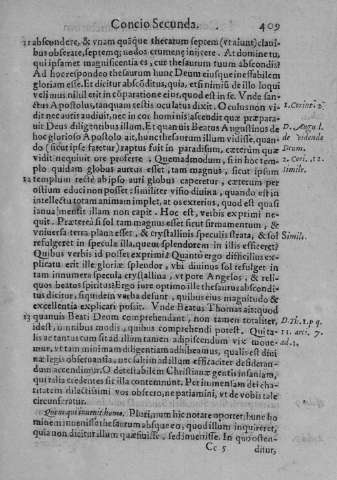 Concio Secunda. 409
11 abscondere, & vnam quãque thecarum septem (vt aiunt) claui-
bus obserare, septemq; nodos crumenę inijcere. At domine tu,
qui ipsamet magnificentia es, cur thesaurum tuum abscondis?
Ad hoc respondeo thesaurum hunc Deum eiusque ineffabilem
gloriam esse. Et dicitur absconditus, quia, etsi nimis de illo loqui
velimus nihil erit in cõparatione eius, quod est in se. Vnde san-
ctus Apostolus, tanquam testis oculatus dixit. Oculus non vi-
dit nec auris audiuit, nec in cor hominis ascendit quæ præpara-
uit Deus diligentibus illum. Et quamuis Beatus Augustinus de
hoc glorioso Apostolo ait, hunc thesaurum illum vidisse, quan-
do (sicut ipse fatetur) raptus fuit in paradisum, cæterùm quæ
vidit nequiuit ore proferre. Quemadmodum, si in hoc tem-
plo quidam globus aureus esset, tam magnus, sicut ipsum
1. Corint. 2.
D. Augu. l.
de videndo
Deum.
2. Cori. 12.
Simile.
12 templum rectè ab ipso auri globus caperetur, cæterum per
ostium educi non posset: similiter visio diuina, quando est in
intellectu totam animam implet, at os exterius, quod est quasi
ianua mentis illam non capit. Hoc est, verbis exprimi ne-
quit. Præterea si sol tam magnus esset sicut firmamentum, &
vniuersa terra plana esset, & crystallinis speculis strata, & sol
refulgeret in specula illa, quem splendorem in illis efficeret?
Quibus verbis id posset exprimi? Quantò ergo difficilius ex-
plicatu erit ille gloriæ splendor, vbi diuinus sol refulget in
tam innumera specula crystallina, vt pote Angelos, & reli-
quos beatos spiritus? Ergo iure optimo ille thesaurus abscondi-
tus dicitur, siquidem verba desunt, quibus eius magnitudo &
excellentia explicari possit. Vnde Beatus Thomas ait: quod
Simile.
13 quamuis Beati Deum comprehendant, non tamen totaliter,
idest, omnibus modis, quibus comprehendi potest.
lis ac tantus cum sit ad illum tamen adipiscendum vix moue-
mur, & tam minimam diligentiam adhibeamus, qualis est diui-
næ legis obseruantia, nec saltim ad illam efficaciter desideran-
dum ascendimus. O detestabilem Christianæ gentis insaniam,
qui talia credentes sit illa contemnunt. Per immensam dei cha-
ritatem dilectissimi vos obsecro, ne patiamini, vt de vobis tale
circunferatur.
D. Th. 1. p. q.
12. art. 7.
ad. 1.
Quem qui inuenit homo. Plurimum hic notare oportet: hunc ho
minem inuenisse thesaurum absque eo, quod illum inquireret,
quia non dicitur illum quæsiuisse, sed inuenisse. In quo osten-
Cc 5 ditur,